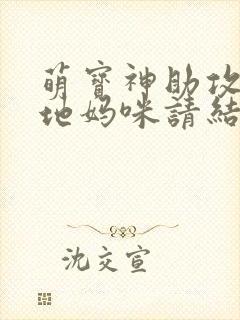 萌寶神助攻
地媽咪請結
沈交宣